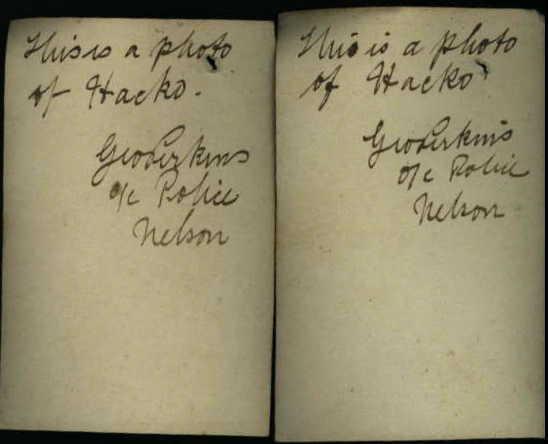 This is a photo
of Hacko.
Geo Perkins
o/c Police
Nelson
This is a photo
of Hacko
Geo Perkins
o/c Police
Nelson